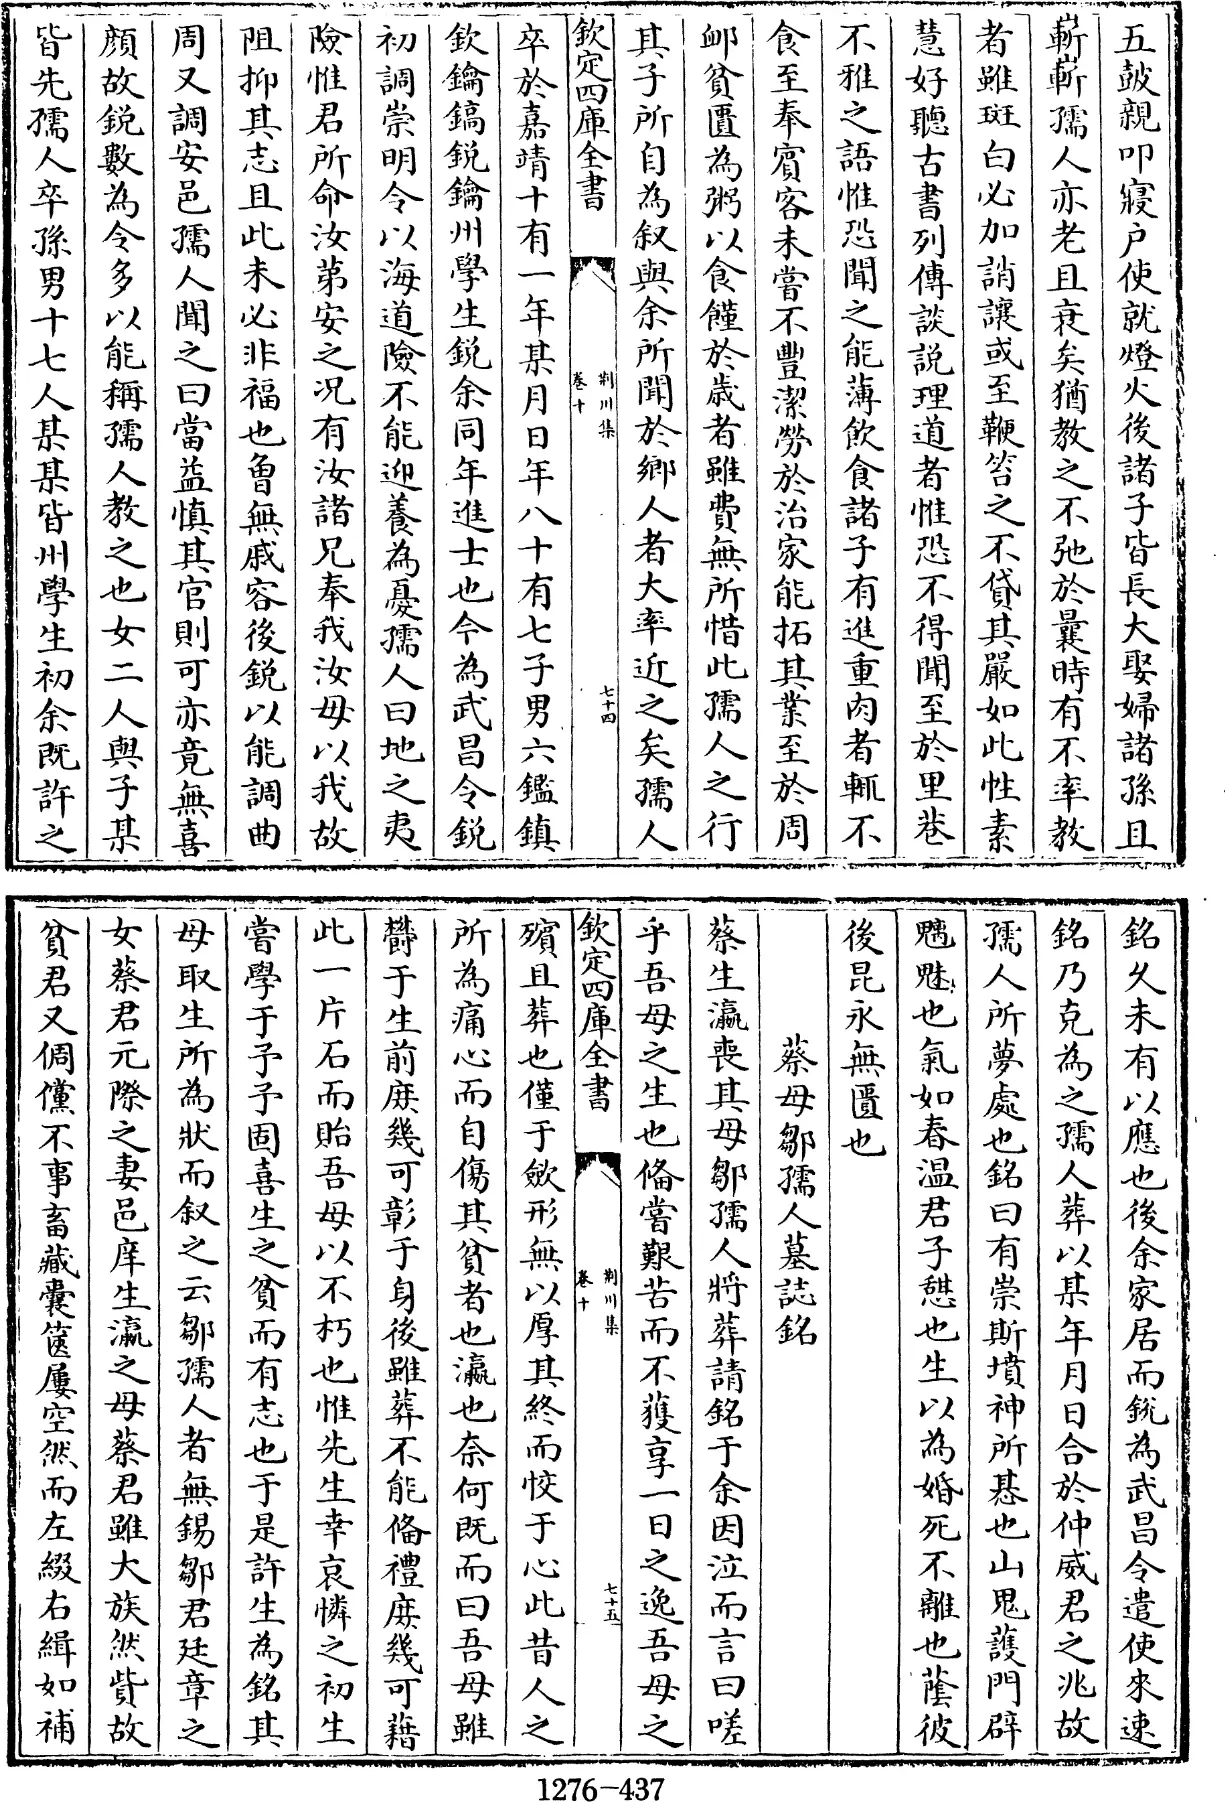 五鼓親叩寢户使就燈火後諸子皆長大娶婦諸孫且
嶄嶄孺人亦老且衰矣猶教之不弛於曩時有不率教
者雖斑白必加誚讓或至鞭笞之不貸其嚴如此性素
慧好聽古書列傳談説理道者惟恐不得聞至於里巷
不雅之語惟恐聞之能薄飲食諸子有進重肉者輒不
食至奉賓客未嘗不豐潔勞於治家能拓其業至於周
卹貧匱為粥以食饉於歲者雖費無所惜此孺人之行
其子所自為叙與余所聞於鄉人者大率近之矣孺人
欽定四庫全書
荆川集
卷十
七十四
卒於嘉靖十有一年某月日年八十有七子男六鑑鎮
欽鑰鎬鋭鑰州學生鋭余同年進士也今為武昌令鋭
初調崇明令以海道險不能迎養為憂孺人曰地之夷
險惟君所命汝第安之况有汝諸兄奉我汝毋以我故
阻抑其志且此未必非福也魯無戚容後鋭以能調曲
周又調安邑孺人聞之曰當益慎其官則可亦竟無喜
顔故鋭數為令多以能稱孺人教之也女二人與子某
皆先孺人卒孫男十七人某某皆州學生初余既許之
銘久未有以應也後余家居而鋭為武昌令遣使來速
銘乃克為之孺人葬以某年月日合於仲威君之兆故
孺人所夢處也銘曰有崇斯墳神所惎也山鬼護門辟
魑魅也氣如春温君子憇也生以為婚死不離也蔭彼
後昆永無匱也
蔡母鄒孺人墓誌銘
蔡生瀛喪其母鄒孺人將葬請銘于余因泣而言曰嗟
乎吾母之生也俻嘗艱苦而不獲享一日之逸吾母之
欽定四庫全書
荆川集
卷十
七十五
殯且葬也僅于斂形無以厚其終而恔于心此昔人之
所為痛心而自傷其貧者也瀛也奈何既而曰吾母雖
欝于生前庻幾可彰于身後雖葬不能俻禮庻幾可藉
此一片石而貽吾母以不朽也惟先生幸哀憐之初生
嘗學于予予固喜生之貧而有志也于是許生為銘其
母取生所為狀而叙之云鄒孺人者無錫鄒君廷章之
女蔡君元際之妻邑庠生瀛之母蔡君雖大族然貲故
貧君又倜儻不事畜藏囊篋屢空然而左綴右緝如補
1276-437